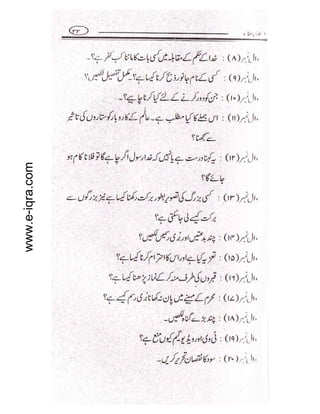 ۴۳
سوال نمبر (۸) : خدا کے حکم کے مقابلہ میں کسی بات کا ماننا کب کفر ہے؟۔
سوال نمبر (۹) : کسی کے نام جانور ذبح کرنا کیسا ہے؟ مکمل تفصیل لکھیں؟
سوال نمبر (۱۰) : جن کو دور کرنے کے لئے کیا کرنا چاہیے؟۔
سوال نمبر (۱۱) : اس جملے کا کیا مطلب ہے۔ عالم کے کاروبار کو ستاروں کی تاثیر
سے سمجھنا؟
سوال نمبر (۱۲) : یہ کہنا درست ہے یا نہیں کہ خدا رسول اگر چاہے گا تو فلانا کام ہو
جائے گا؟
سوال نمبر (۱۳) : کسی بزرگ کی تصویر بطور برکت رکھنا کیسا ہے نیز بزرگوں سے
برکت کیسے لی جا سکتی ہے؟
سوال نمبر (۱۴) : چند بدعتیں اور بُری رسمیں لکھیں؟
سوال نمبر (۱۵) : تعزیہ کیا ہے اور اس کا احترام کرنا کیسا ہے؟
سوال نمبر (۱۶) : قبروں کی طرف منہ کر کے نماز پڑھنا کیسا ہے؟
سوال نمبر (۱۷) : محرم کے مہینے میں پان نہ کھانا بُری رسم کیسے ہے؟
سوال نمبر (۱۸) : چند بڑے گناہ لکھیں۔
سوال نمبر (۱۹) : ٹی وی اور ویڈیو گیم کیوں منع ہے؟
سوال نمبر (۲۰) : سود کا نقصان تحریر کریں۔
www.e-iqra.com